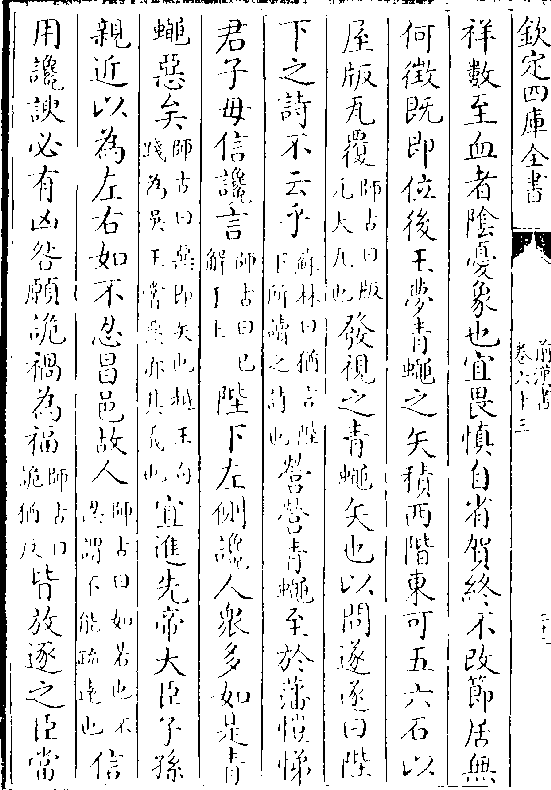 欽定四庫全書
前漢書
卷六十三
祥數至血者陰憂象也宜畏慎自省賀終不改節居無
何徵既即位後王夢青蠅之矢積西階東可五六石以
屋版瓦覆師古曰版瓦大瓦也發視之青蠅矢也以問遂遂曰陛
下之詩不云乎蘇林曰猶言陛下所讀之詩也營營青蠅至於藩愷悌
君子毋信讒言師古曰已解于上陛下左側讒人衆多如是青
蠅惡矣師古曰惡即矢也越王句踐為吳王嘗惡亦其義也宜進先帝大臣子孫
親近以為左右如不忍昌邑故人師古曰如若也不忍謂不能疏遠也信
用讒諛必有凶咎願詭禍為福師古曰詭猶反皆放逐之臣當